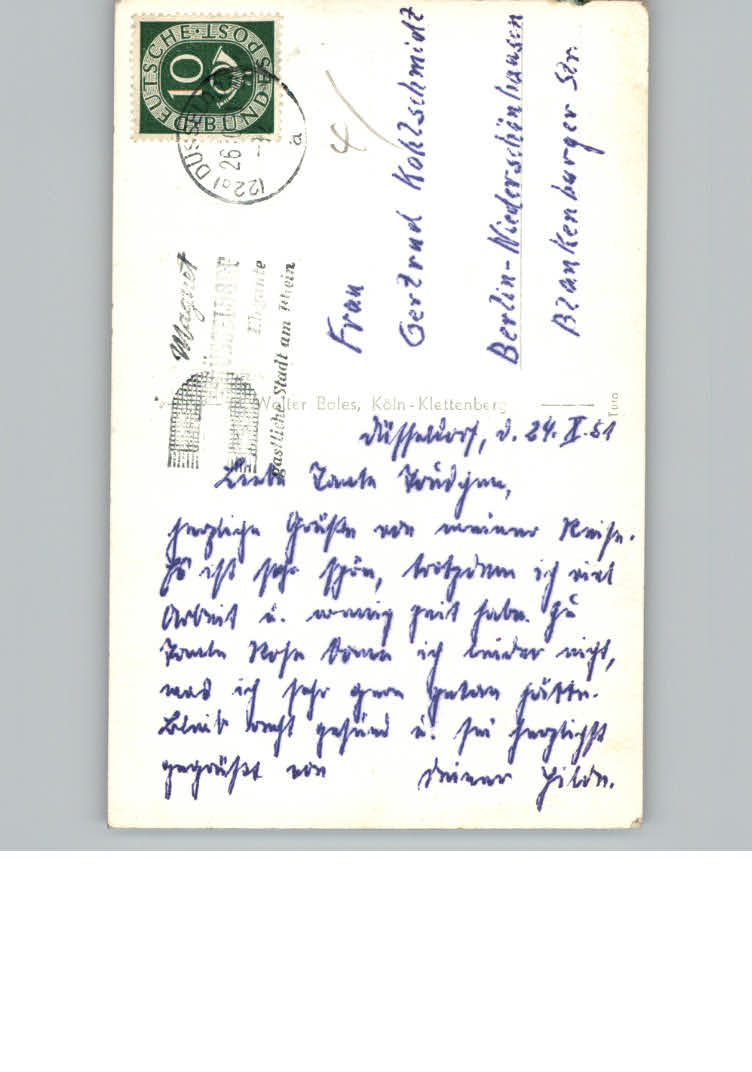 DEUTSCHE·POST
10
BUNDES
(22a) DÜSSELDORF
26
a
Magnet
DÜSSELDORF
Elegante
gastliche Stadt am Rhein
Frau
Gertrud Kohlschmidt
Berlin-Niederschönhausen
Blankenburger Str.
Walter Boles, Köln-Klettenberg
Düsseldorf, d. 24. X. 51
Liebe Tante Trudchen,
herzliche Grüße von meiner Reise.
Es ist sehr schön, trotzdem ich viel
Arbeit u. wenig Zeit habe. Zu
Tante Rose komme ich leider nicht,
was ich sehr gern getan hätte.
Bleib recht gesund u. sei herzlichst
gegrüßt von Deiner Hilde.